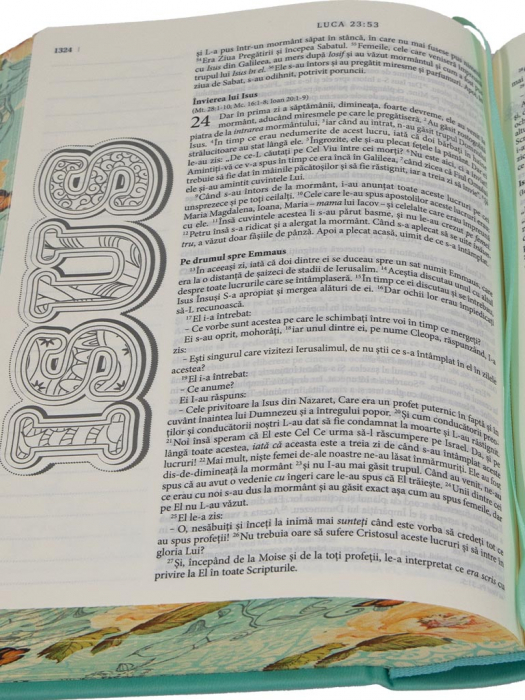 LUCA 23:53
1324
și L-a pus într-un mormânt săpat în stâncă, în care nu mai fusese pus
Era Ziua Pregătirii și începea Sabatul. ⁵⁵Femeile, care veniseră
cu Isus din Galileea, au mers după Iosif și au văzut mormântul și cum a
trupul lui Isus în el. ⁵⁶Ele s-au întors și au pregătit miresme și parfumuri. Apoi,
ziua de Sabat, s-au odihnit, potrivit poruncii.
Învierea lui Isus
(Mt. 28:1-10; Mc. 16:1-8; Ioan 20:1-9)
24 Dar în prima zi a săptămânii, dimineața, foarte devreme, ele au
mormânt, aducând miresmele pe care le pregătiseră. ²Au găsit
piatra de la intrarea mormântului, ³iar când au intrat, n-au găsit trupul
Isus. ⁴În timp ce erau nedumerite de acest lucru, iată că doi bărbați în
strălucitoare au stat lângă ele. ⁵Îngrozite, ele și-au plecat fețele la pământ.
le-au zis: „De ce-L căutați pe Cel Viu între cei morți? ⁶Nu este aici, ci a
Amintiți-vă ce v-a spus în timp ce era încă în Galileea, ⁷când zicea că Fiul Omului
trebuie să fie dat în mâinile păcătoșilor și să fie răstignit, iar a treia zi să
ele și-au amintit cuvintele Lui.
⁹Când s-au întors de la mormânt, i-au anunțat toate aceste lucruri pe cei
unsprezece și pe toți ceilalți. ¹⁰Cele care le-au spus apostolilor aceste lucruri
Maria Magdalena, Ioana, Maria – mama lui Iacov – și celelalte care erau împreună
cu ele. ¹¹Însă cuvintele acestea li s-au părut basme, și nu le-au crezut pe
¹²Petru însă s-a ridicat și a alergat la mormânt. Când s-a aplecat să se uite
tru, a văzut doar fâșiile de pânză. Apoi a plecat acasă, uimit de ce s-a întâmplat.
Pe drumul spre Emmaus
¹³În aceeași zi, iată că doi dintre ei se duceau spre un sat numit Emmaus, care
era la o distanță de șaizeci de stadii de Ierusalim. ¹⁴Aceștia discutau unul cu altul
despre toate lucrurile care se întâmplaseră. ¹⁵În timp ce ei discutau și se întrebau,
Isus Însuși S-a apropiat și mergea alături de ei. ¹⁶Dar ochii lor erau împiedicați
să-L recunoască.
¹⁷El i-a întrebat:
– Ce vorbe sunt acestea pe care le schimbați între voi în timp ce mergeți?
Ei s-au oprit, mohorâți, ¹⁸iar unul dintre ei, pe nume Cleopa, răspunzând, I-a
zis:
– Ești singurul care vizitezi Ierusalimul, de nu știi ce s-a întâmplat în el în zilele
acestea?
¹⁹El i-a întrebat:
– Ce anume?
Ei I-au răspuns:
– Cele privitoare la Isus din Nazaret, Care era un profet puternic în faptă și în
cuvânt înaintea lui Dumnezeu și a întregului popor. ²⁰Și cum conducătorii preo-
ților și conducătorii noștri L-au dat să fie condamnat la moarte și L-au răstignit.
²¹Noi însă speram că El este Cel Ce urma să-l răscumpere pe Israel. Da, și pe
lângă toate acestea, iată că aceasta este a treia zi de când s-au întâmplat aceste
lucruri! ²²Mai mult, niște femei de-ale noastre ne-au lăsat înmărmuriți. Ele au fost
dis-de-dimineață la mormânt ²³și nu I-au mai găsit trupul. Când au venit, ne-au
spus că au avut o vedenie cu îngeri care le-au spus că El trăiește. ²⁴Unii dintre cei
ce erau cu noi s-au dus la mormânt și au găsit exact așa cum au spus femeile, dar
pe El nu L-au văzut.
²⁵El le-a zis:
– O, nesăbuiți și înceți la inimă mai sunteți când este vorba să credeți tot ce
au spus profeții! ²⁶Nu trebuia oare să sufere Cristosul aceste lucruri și să intre în
gloria Lui?
²⁷Și, începând de la Moise și de la toți profeții, le-a interpretat ce era scris cu
privire la El în toate Scripturile.
ISUS